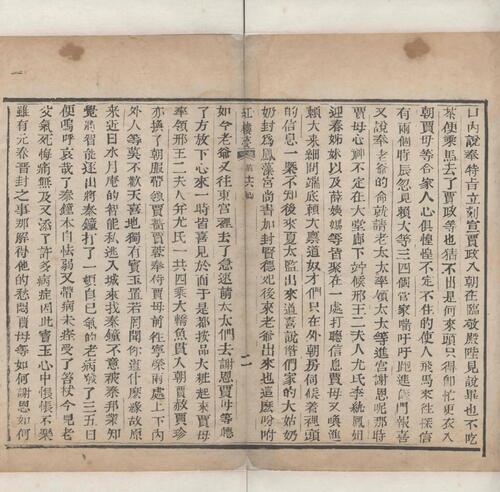 口內說奉特旨立刻宣賈政入朝在臨敬殿陛見說畢也不吃
茶便乘馬去了賈政等也猜不出是何來頭只得卽忙更衣入
朝賈母等合家人心俱惶惶不定不住的使人飛馬來往探信
有兩個時辰忽見賴大等三四個管家喘吁吁跑進儀門報喜
又說奉老爺的命就請老太太率領太太等進宮謝恩呢那時
賈母心神不定在大堂廊下竚候那王二夫人尤氏李紈鳳姐
迎春姊妹以及薛姨媽等皆聚在一處打聽信息賈母又喚進
賴大來細問端底賴大禀道奴才們只在外朝房伺候着裡頭
的信息一槩不知後來夏太監出來道喜說偺們家的大姑奶
奶封爲鳳藻宮尚書加封賢德妃後來老爺出來也這麽吩咐
紅樓夢
二
如今老爺又往東宮裡去了急速請太太們去謝恩賈母等聽
了方放下心來一時皆喜見於面于是都按品大粧起來賈母
率領那王二夫人并尤氏一共四乘大轎魚貫入朝賈赦賈珍
亦換了朝服帶領賈薔賈蓉奉侍賈母前往寧榮兩處上下內
外人等莫不歡天喜地獨有寶玉置若罔聞你道什麽緣故原
來近日水月庵的智能私逃入城來找秦鐘不意被秦邦業知
覺將智能逐出將秦鐘打了一頓自已氣的老病發了三五日
便嗚呼哀哉了秦鐘本自怯弱又帶病未痊受了笞杖今見老
父氣死悔痛無及又添了許多病症因此寶玉心中悵悵不樂
雖有元春晉封之事那解得他的愁悶賈母等如何謝恩如何